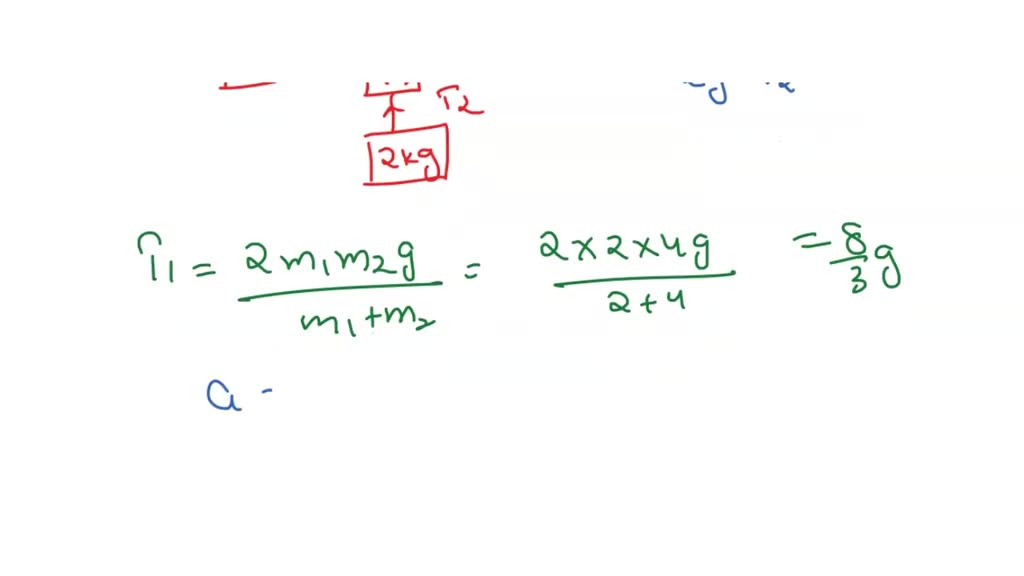 T2
2kg
T1 = 2m1m2g / m1+m2 = 2×2×4g / 2+4 = 8/3 g
a -